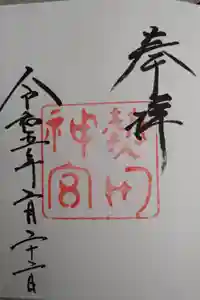 奉拝
熱田
神宮
令和五年二月二十二日